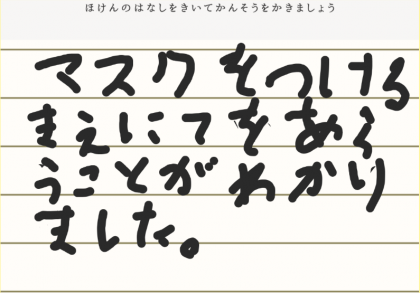 ほけんのはなしをきいてかんそうをかきましょう
マスクをつける
まえにてをあら
うことがわかり
ました。